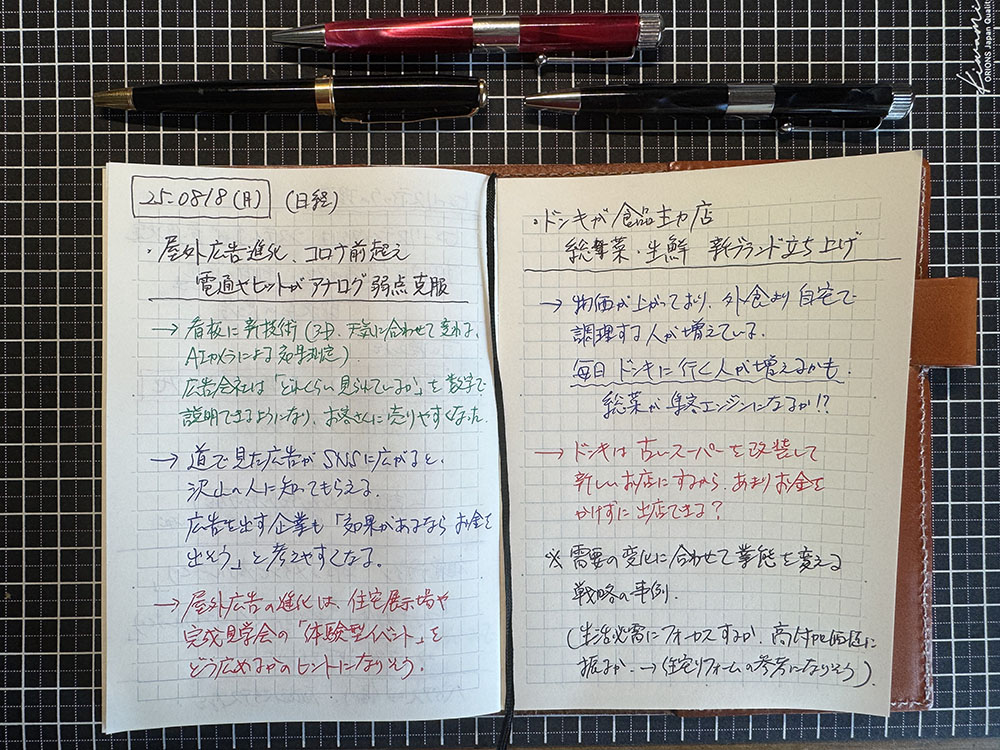 Kiwami
ORIONS Japan Quality
25-0818(月) (日経)
・屋外広告進化、コロナ前超え
電通やヒットがアナログ弱点克服
→ 看板に新技術(3D、天気に合わせて変わる、
AIカメラによる効果測定)
広告会社は「どれくらい見られているか」を数字で
説明できるようになり、お客さんに売りやすくなった。
→ 道で見た広告がSNSに広がると、
沢山の人に知ってもらえる。
広告を出す企業も「効果があるならお金を
出そう」と考えやすくなる。
→ 屋外広告の進化は、住宅展示場や
完成見学会の「体験型イベント」を
どう広めるかのヒントになりそう。
・ドンキが食品主力店
総菜・生鮮 新ブランド立ち上げ
→ 物価が上がっており、外食より自宅で
調理する人が増えている。
毎日ドンキに行く人が増えるかも。
総菜が集客エンジンになるか!?
→ ドンキは古いスーパーを改装して
新しいお店にするから、あまりお金を
かけずに出店できる?
※ 需要の変化に合わせて業態を変える
戦略の事例。
(生活必需にフォーカスするか、高付加価値に
振るか。→住宅リフォームの参考になりそう)